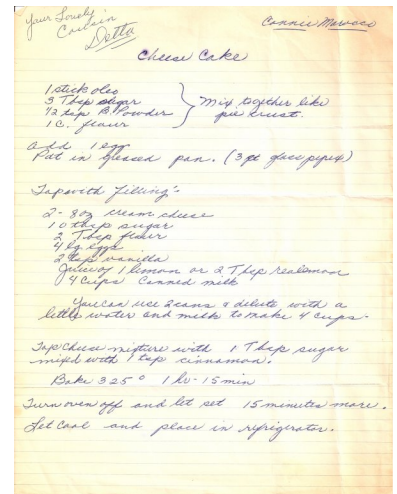 Your Lovely
Cousin
Detta
Connie Marocco
Cheese Cake
1 stick oleo
3 Tbsp sugar
1/2 tsp B. Powder
1 C. flour
Mix together like
pie crust.
add 1 egg
Put in greased pan. (3 qt glass pyrex)
Top with filling:
2 - 8 oz cream cheese
10 tbsp sugar
2 Tbsp flour
4 lg eggs
2 tsp vanilla
Juice of 1 lemon or 2 Tbsp realemon
4 Cups Canned milk
You can use 2 cans & dilute with a
little water and milk to make 4 cups.
Top cheese mixture with 1 Tbsp sugar
mixed with 1 tsp cinnamon.
Bake 325° 1 hr - 15 min
Turn oven off and let set 15 minutes more.
Let cool and place in refrigerator.